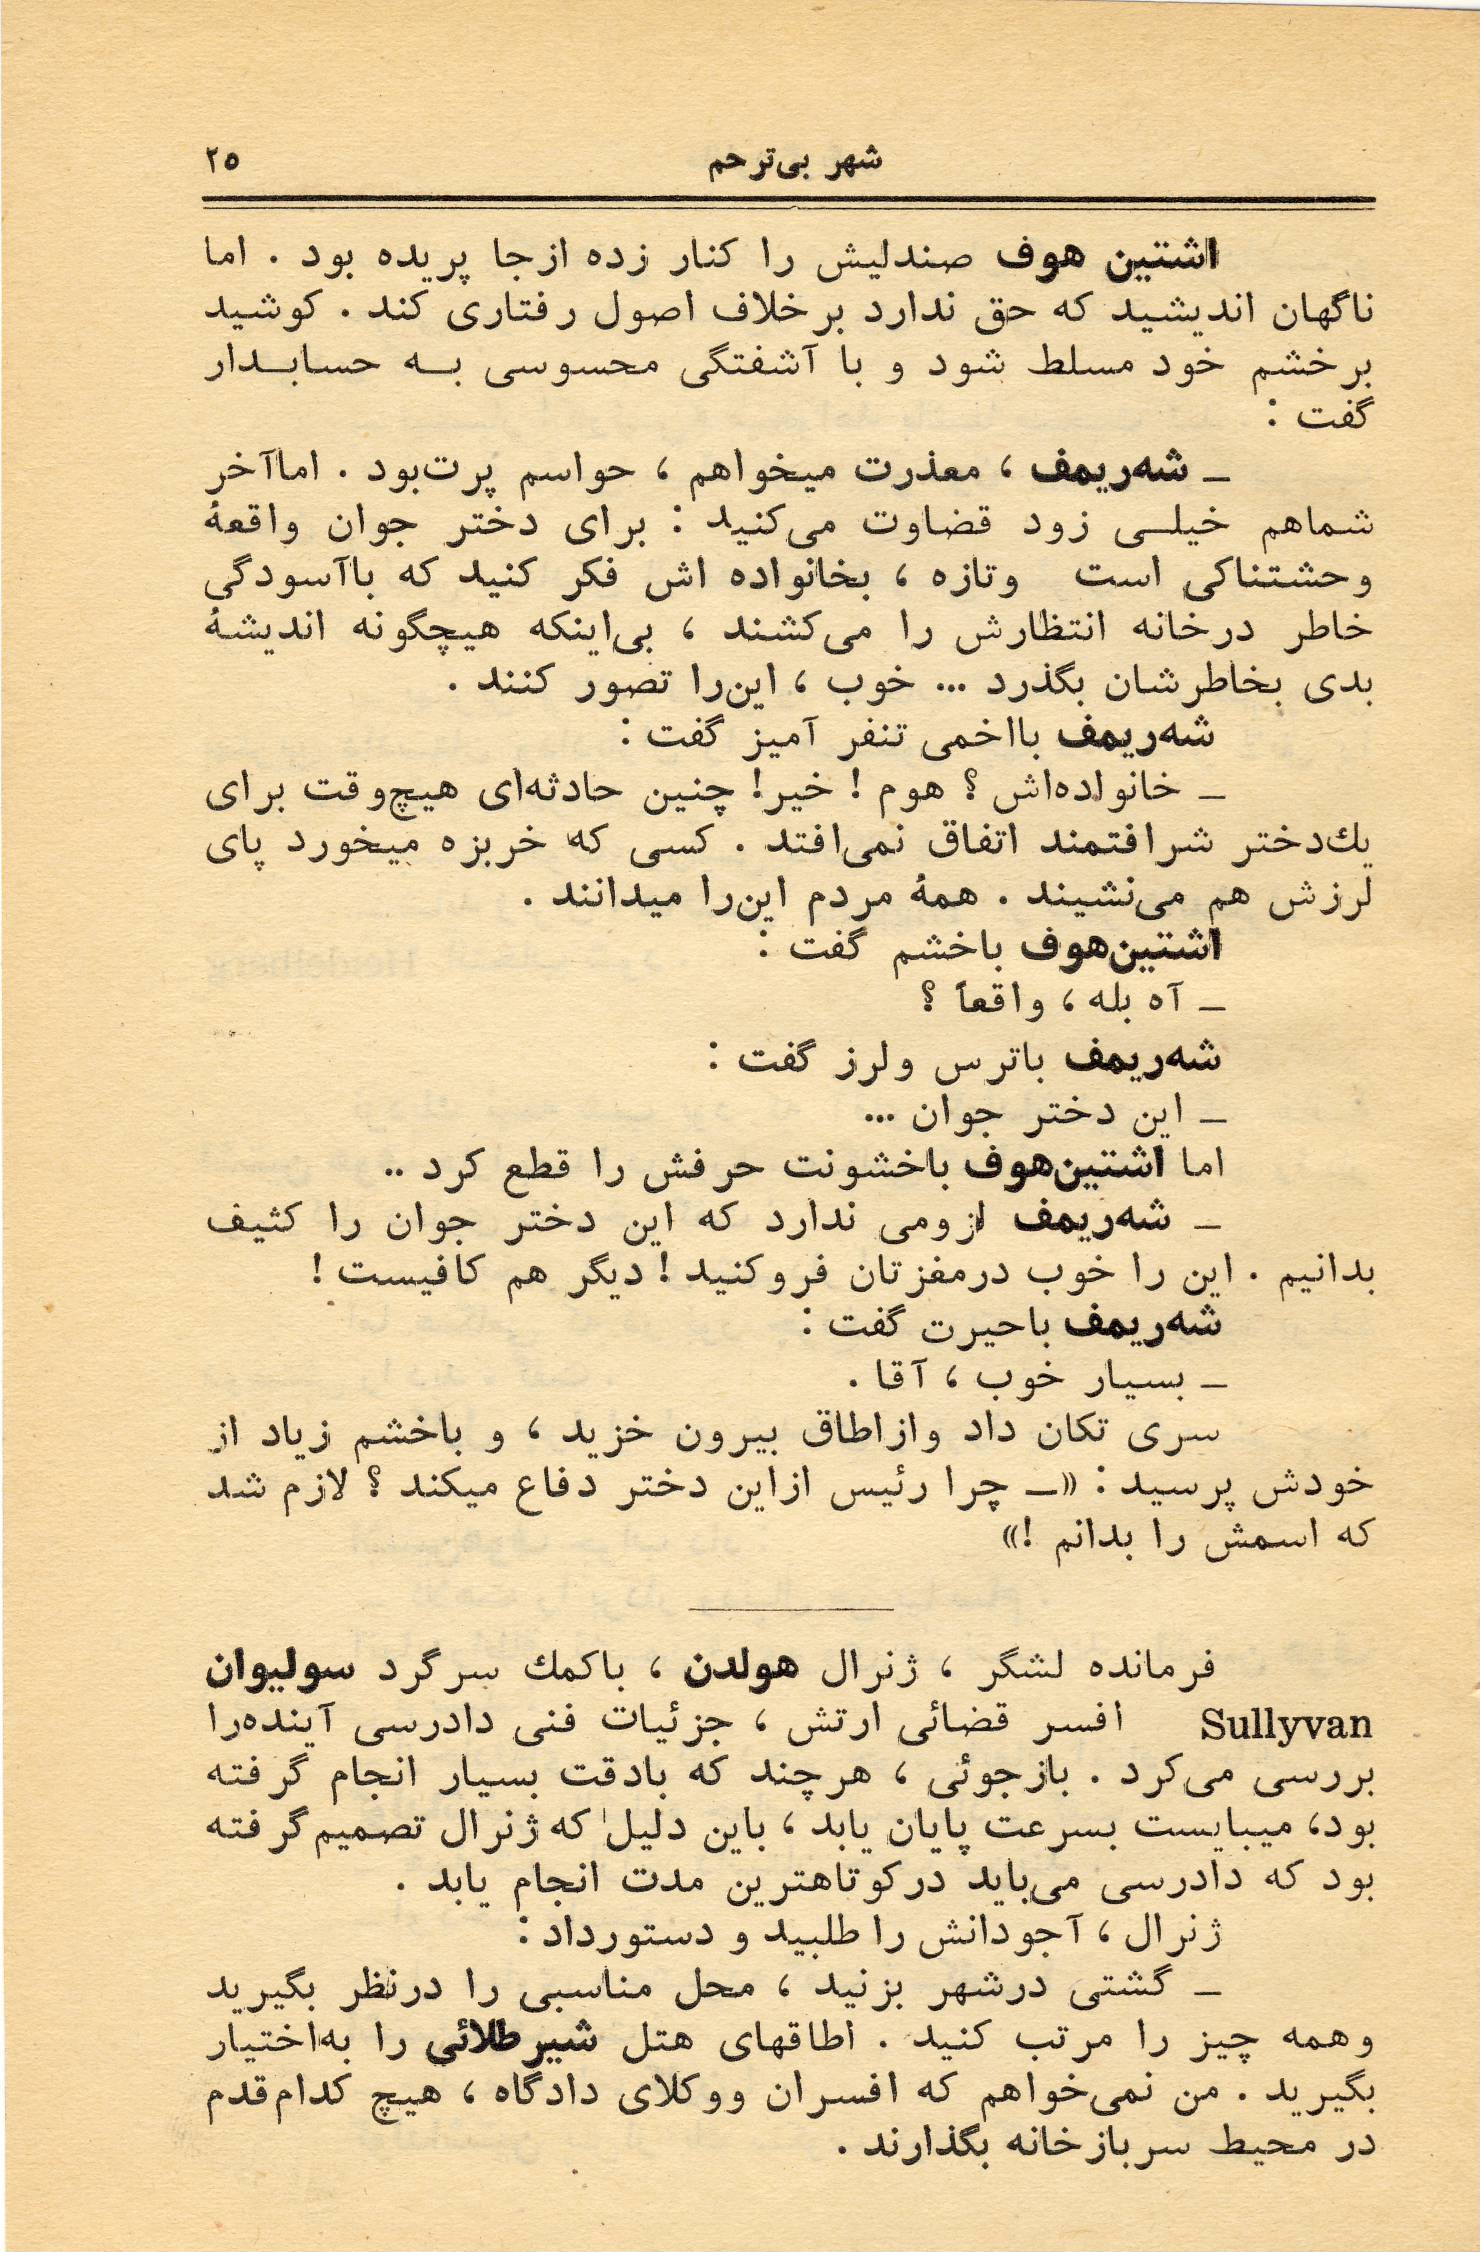 شهر بی‌ترحم ۲۵
اشتین هوف صندلیش را کنار زده ازجا پریده بود . اما
ناگهان اندیشید که حق ندارد برخلاف اصول رفتاری کند . کوشید
برخشم خود مسلط شود و با آشفتگی محسوسی بـه حسابـدار
گفت :
ـ شه‌ریمف ، معذرت میخواهم ، حواسم پرت‌بود . اماآخر
شماهم خیلـی زود قضاوت می‌کنید : برای دختر جوان واقعهٔ
وحشتناکی است وتازه ، بخانواده اش فکر کنید که باآسودگی
خاطر درخانه انتظارش را می‌کشند ، بی‌اینکه هیچگونه اندیشهٔ
بدی بخاطرشان بگذرد ... خوب ، این‌را تصور کنند .
شه‌ریمف بااخمی تنفر آمیز گفت :
ـ خانواده‌اش ؟ هوم ! خیر! چنین حادثه‌ای هیچ‌وقت برای
یك‌دختر شرافتمند اتفاق نمی‌افتد . کسی که خربزه میخورد پای
لرزش هم می‌نشیند . همهٔ مردم این‌را میدانند .
اشتین‌هوف باخشم گفت :
ـ آه بله ، واقعاً ؟
شه‌ریمف باترس ولرز گفت :
ـ این دختر جوان ...
اما اشتین‌هوف باخشونت حرفش را قطع کرد ..
ـ شه‌ریمف لزومی ندارد که این دختر جوان را کثیف
بدانیم . این را خوب درمفزتان فروکنید ! دیگر هم کافیست !
شه‌ریمف باحیرت گفت :
ـ بسیار خوب ، آقا .
سری تکان داد وازاطاق بیرون خزید ، و باخشم زیاد از
خودش پرسید : «ـ چرا رئیس ازاین دختر دفاع میکند ؟ لازم شد
که اسمش را بدانم !»
فرمانده لشگر ، ژنرال هولدن ، باکمك سرگرد سولیوان
Sullyvan افسر قضائی ارتش ، جزئیات فنی دادرسی آینده‌را
بررسی می‌کرد . بازجوئی ، هرچند که بادقت بسیار انجام گرفته
بود، میبایست بسرعت پایان یابد ، باین دلیل که ژنرال تصمیم گرفته
بود که دادرسی می‌باید درکوتاهترین مدت انجام یابد .
ژنرال ، آجودانش را طلبید و دستورداد :
ـ گشتی درشهر بزنید ، محل مناسبی را درنظر بگیرید
وهمه چیز را مرتب کنید . اطاقهای هتل شیرطلائی را به‌اختیار
بگیرید . من نمی‌خواهم که افسران ووکلای دادگاه ، هیچ کدام‌قدم
در محیط سربازخانه بگذارند .